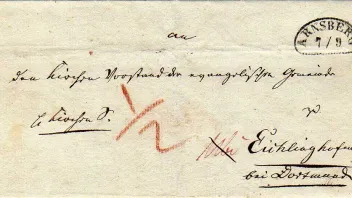 ARNSBERG
7/9
an
den Kirchen Vorstand der evangelischen Gemeinde
Kirchen S.
1/2
zu
Eichlinghofen
bei Dortmund